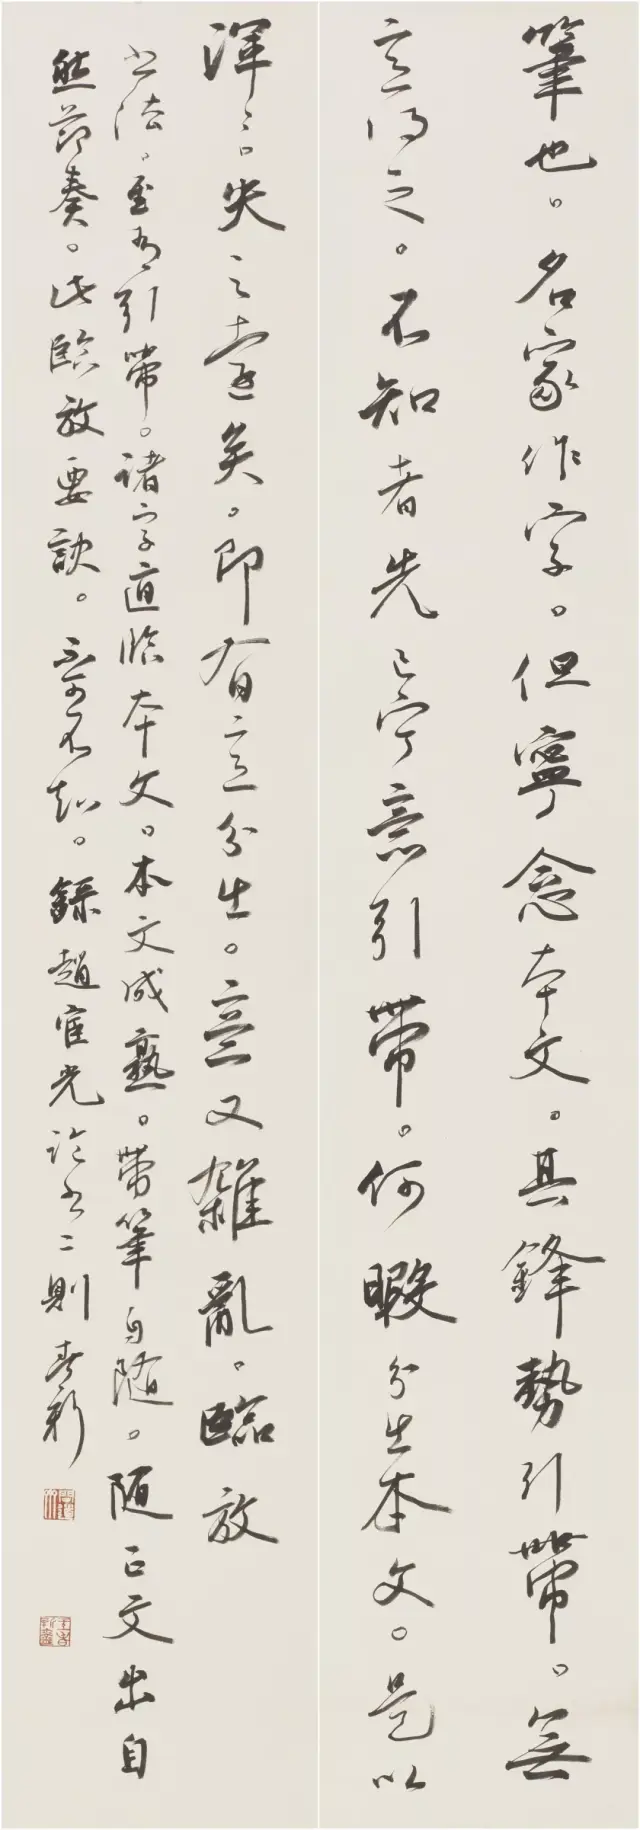 筆也。名家作字。但寧念本文。其鋒勢引帶。無
意得之。不知者先已寧意引帶。何暇分生本文。是以
渾渾。失之遠矣。即有意分生。意又雜亂。臨放
書法。至有引帶。諸字直臨本文。本文成熟。帶筆自随。随正文出自
然節奏。此臨放要訣。不可不知。錄趙宧光論書二則 春新